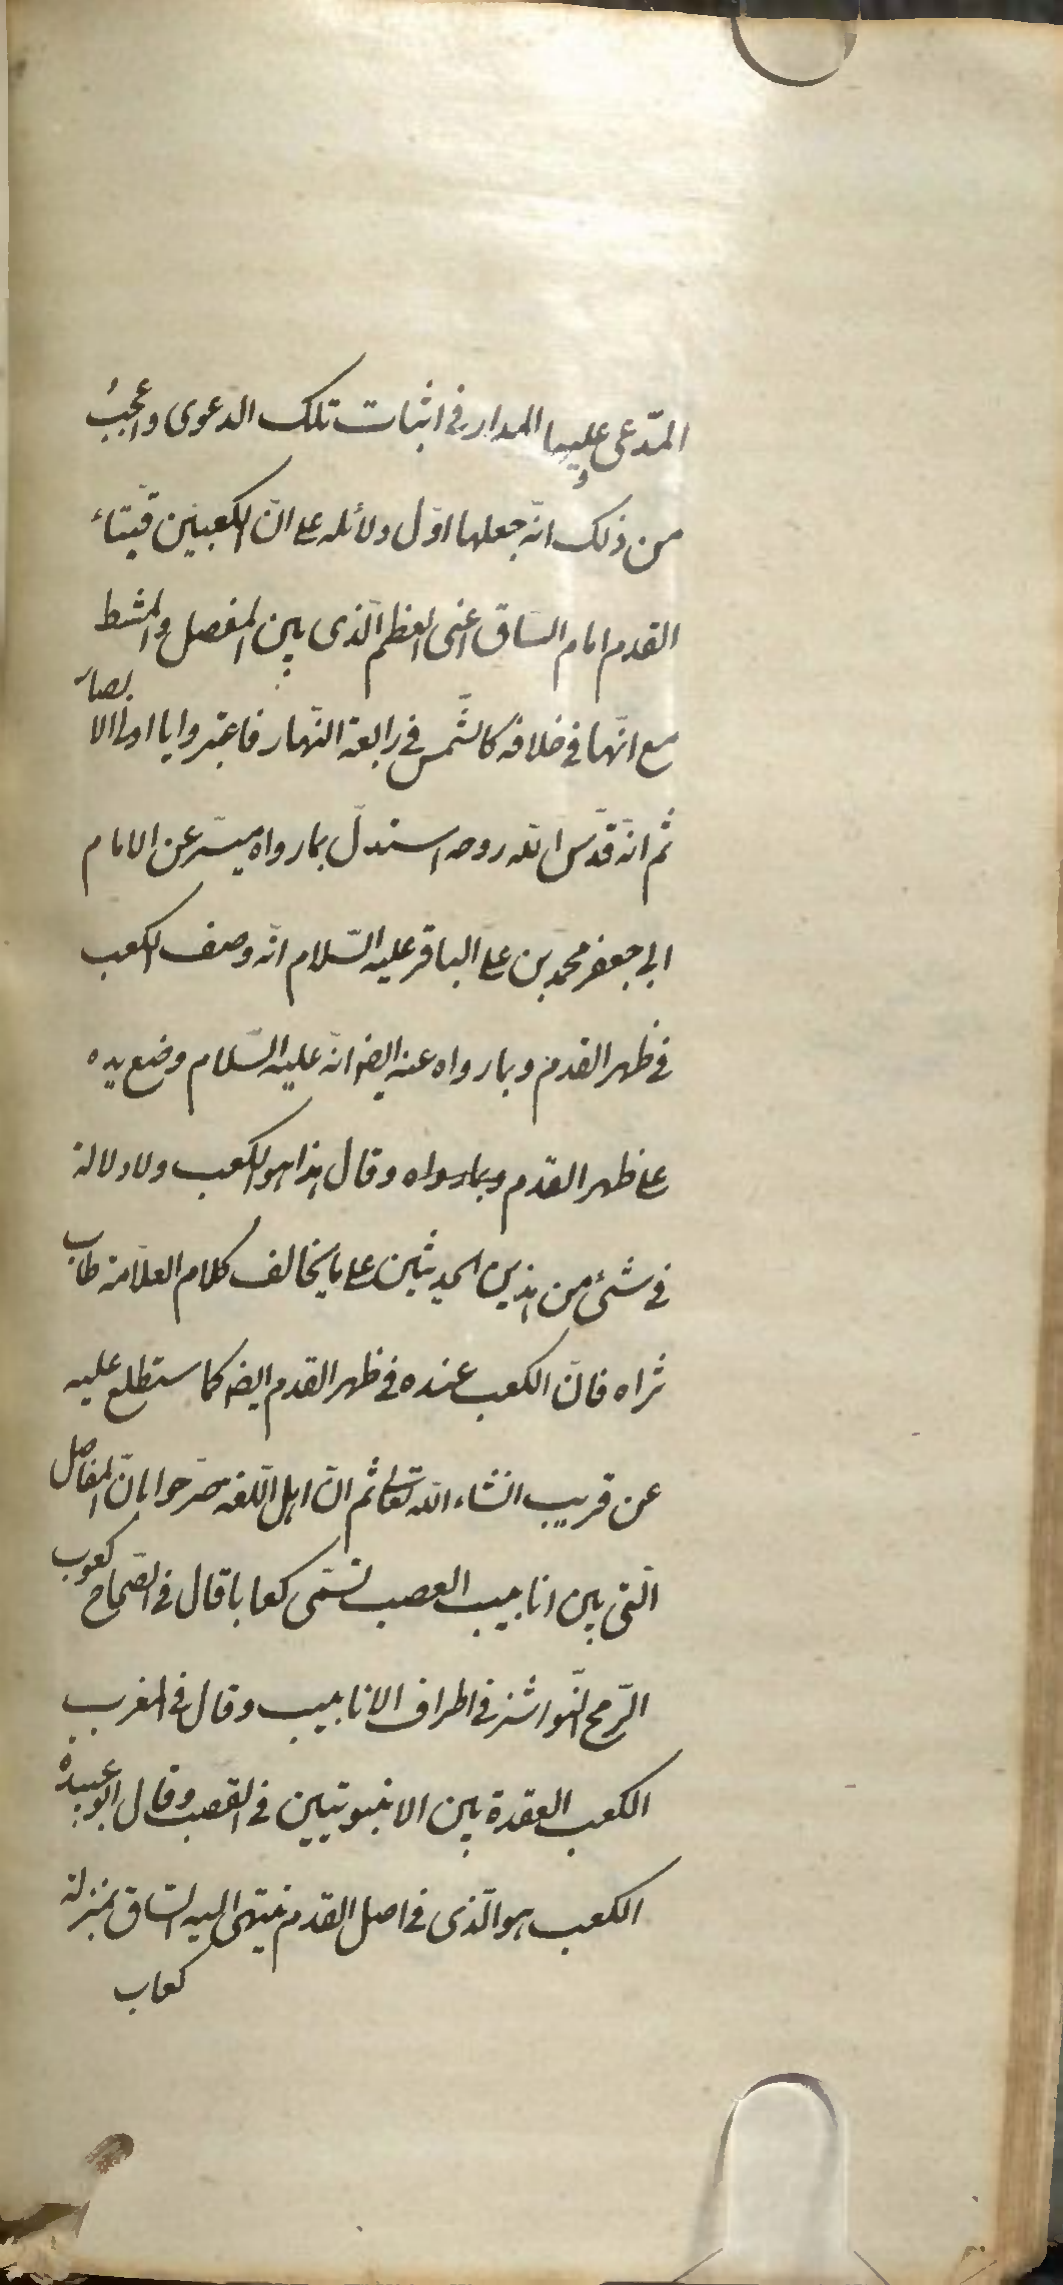 المدّعى عليها المدار فى اثبات تلك الدعوى واعجبُ
من ذلك انّه جعلها اوّل دلائله على انّ الكعبين قبّتاء
القدم امام الساق اعنى العظم الّذى بين المفصل والمشط
مع انّها فى خلافه كالشّمس فى رابعة النّهار فاعتبروا يا اولى الابصار
ثم انّه قدّس الله روحه استدلّ بما رواه ميسّر عن الامام
ابى جعفر محمّد بن على الباقر عليه السّلام انّه وصف الكعب
فى ظهر القدم وبما رواه عنه ايضا انّه عليه السّلام وضع يده
على ظهر القدم وبما رواه وقال هذا هو الكعب ولا دلالة
فى شئ من هذين الحديثين على ما يخالف كلام العلّامة طاب
ثراه فانّ الكعب عنده فى ظهر القدم ايضا كما ستطلع عليه
عن قريب انشاء الله تعالى ثم انّ اهل اللّغة صرّحوا بانّ المفاصل
الّتى بين انابيب العصب تسمّى كعابا قال فى الصّحاح كعوب
الرّمح النّواشز فى اطراف الانابيب وقال فى المغرب
الكعب العقدة بين الانبوبتين فى القصب وقال ابو عبيدة
الكعب هو الّذى فى اصل القدم ينتهى اليه السّاق بمنزلة
كعاب